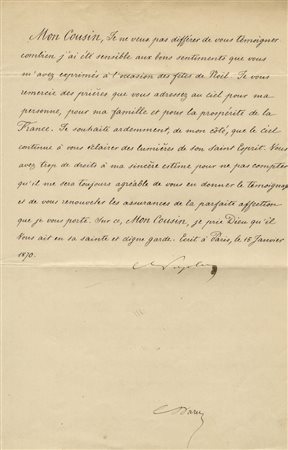 Mon Cousin, Je ne veux pas différer de vous témoigner
combien j'ai été sensible aux bons sentiments que vous
m'avez exprimés à l'occasion des fêtes de Noël. Je vous
remercie des prières que vous adressez au ciel pour ma
personne, pour ma famille et pour la prospérité de la
France. Je souhaite ardemment, de mon côté, que le ciel
continue à vous éclairer des lumières de son Saint Esprit. Vous
avez trop de droits à ma sincère estime pour ne pas compter
qu'il me sera toujours agréable de vous en donner le témoignage
et de vous renouveler les assurances de la parfaite affection
que je vous porte. Sur ce, Mon Cousin, je prie Dieu qu'il
vous ait en sa sainte et digne garde. Écrit à Paris, le 15 Janvier
1870.
Napoléon
Daru